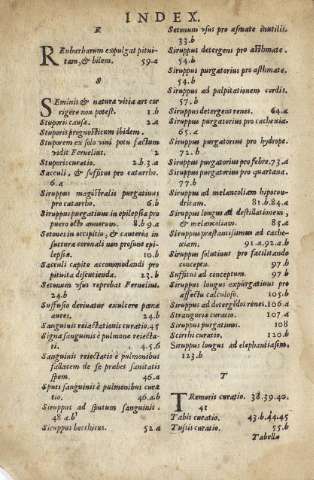 INDEX.
R
REubarbarum expulgat pitui-
tam, & bilem. 59.a
S
SEminis & natura vitia art cor
rigere non potest. 1.b
Stuporis causa. 2.a
Stuporis prognosticum ibidem.
Stuporem ex solo vini potu factum
vidit Fernelius. 2
Stuporis curatio. 2.b.3.a
Sacculi, & suffitus pro catarrho.
6.a
Siruppus magistralis purgatiuus
pro catarrho. 6.b
Siruppus purgatiuus in epilepsia pro
puero octo annorum. 8.b.9.a
Setones in occipitio, & cauteria in
sutura coronali non prosunt epi-
lepsiæ. 10.b
Sacculi capite accommodandi pro
pituita discutienda. 23.b
Setonum vsus reprobat Fernelius.
24.b
Suffusio deriuatur exulcere pana
ures. 24.b
Sanguinis reiectationis curatio. 45
Signa sanguinis è pulmone reiecta-
ti. 4.5.b
Sanguinis reiectatis è pulmonibus
facilitatem de se præbet sanitatis
spem. 46.a
Sputi sanguinis è pulmonibus cura-
tio. 46.a.b
Siruppus ad sputum sanguinis.
48 a.b
Siruppus becchicus. 52 a
Setonum vsus pro asmate inutilis.
33.b
Siruppus detergens pro asthmate.
54.b
Siruppus purgatorius pro asthmate.
54.b
Siruppus ad palpitationem cordis.
57.b
Siruppus detergens renes. 64.a
Siruppus purgatorius pro cachexia.
65.a
Siruppus purgatorius pro hydrope.
72.b
Siruppus purgatorius pro febre. 73.a
Siruppus purgatorius pro quartana.
77.b
Siruppus ad melancoliam hipocon-
driacam. 81.b.84.a
Siruppus longus ad destillationem,
& melancoliam. 83.a
Siruppus præstantissimus ad cache-
xiam. 91.a.92.a.b
Siruppus solutiuus pro facilitando
conceptu. 97.b
Suffitus ad conceptum. 97.b
Siruppus longus expurgatiuus pro
affectu calculoso. 105.b
Siruppus ad detergendos renes. 106.a
Strangoriæ curatio. 107.a
Siruppus purgatiuus. 108
Scirrhi curatio. 120.b
Siruppus longus ad elephantiasim.
123.b
T
TRemoris curatio. 38.39.40.
41
Tabis curatio. 43.b.44.45
Tussis curatio. 55.b
Tabella